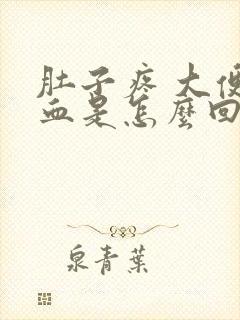 肚子疼大便
血是怎麼回
泉青葉